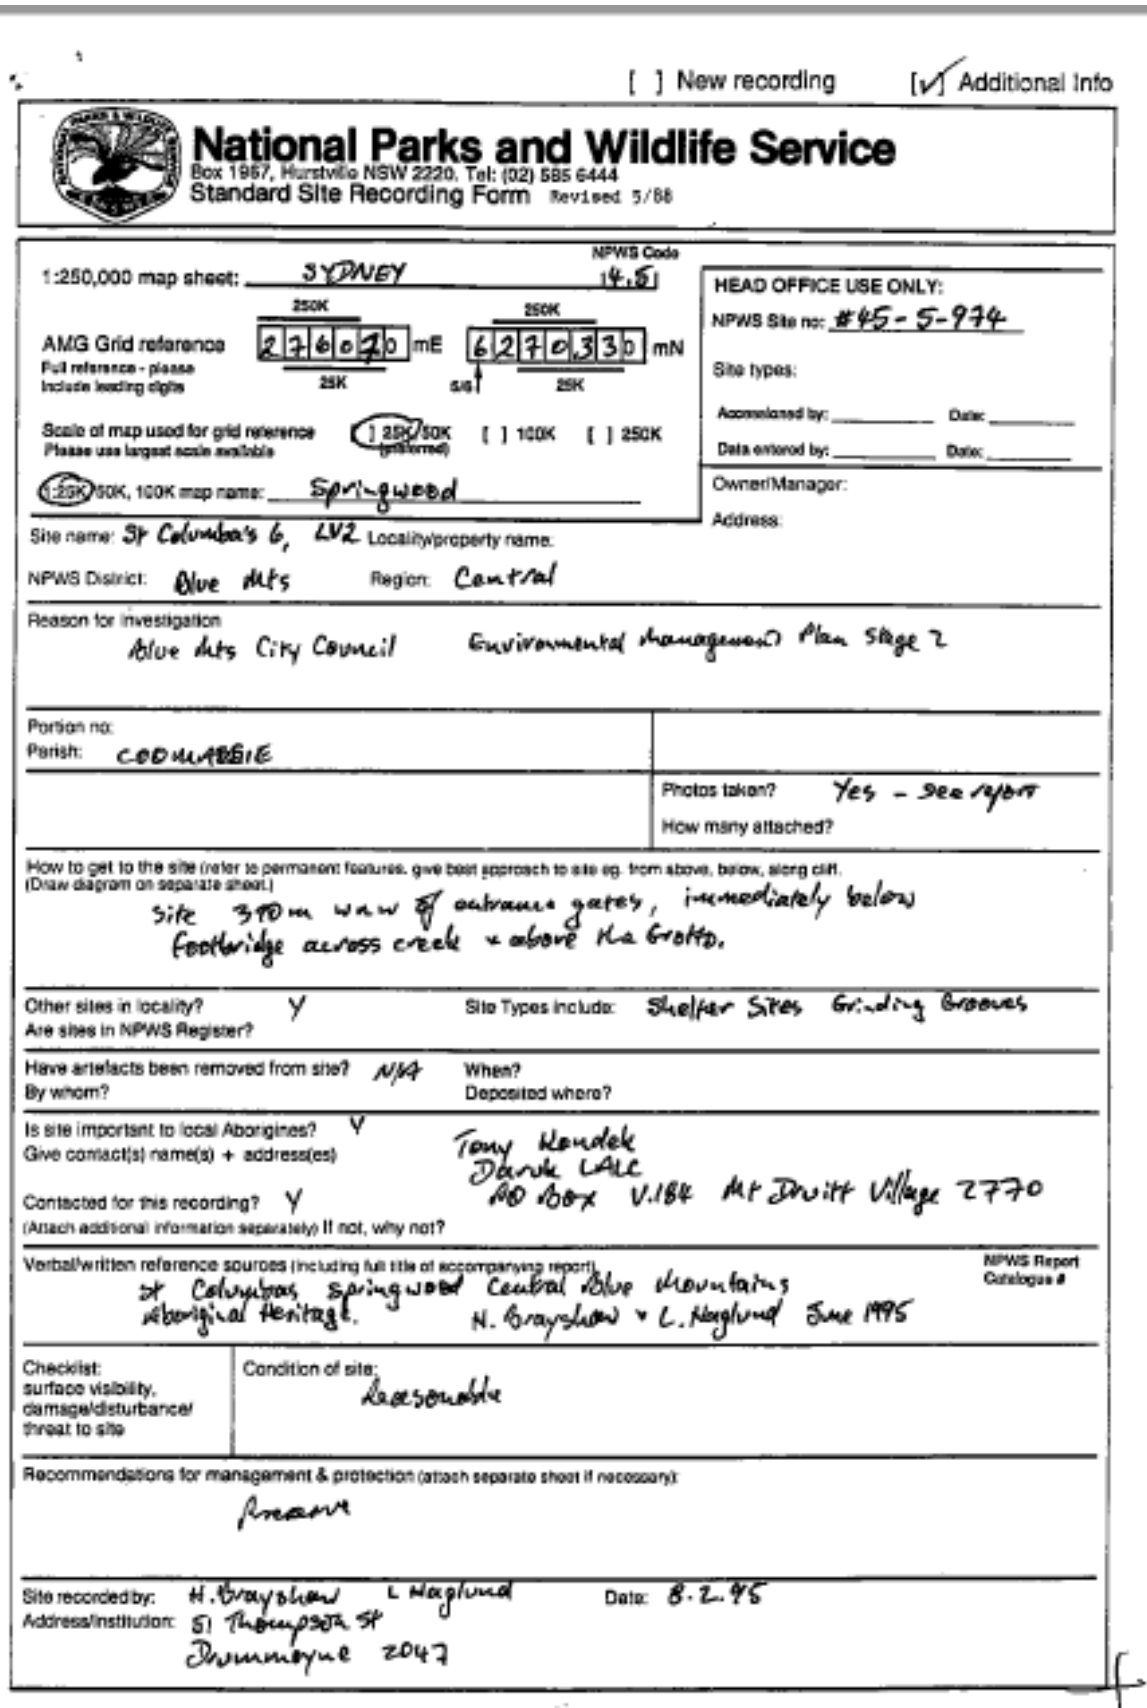 [ ] New recording [✓] Additional Info
National Parks and Wildlife Service
Box 1967, Hurstville NSW 2220. Tel: (02) 585 6444
Standard Site Recording Form Revised 5/88
NPWS Code
1:250,000 map sheet: SYDNEY
HEAD OFFICE USE ONLY:
250K 250K
NPWS Site no: #45-5-974
AMG Grid reference mE 6270330 mN
Full reference - please
include leading digits
25K 5/6 25K
Site types:
Accessioned by: Date:
Scale of map used for grid reference [ ] 25K/50K [ ] 100K [ ] 250K
Please use largest scale available (preferred)
Data entered by: Date:
1:25K, 50K, 100K map name: Springwood
Owner/Manager:
Address:
Site name: St Columba's 6, LV2 Locality/property name:
NPWS District: Blue Mts Region: Central
Reason for investigation
Blue Mts City Council Environmental Management Plan Stage 2
Portion no:
Parish:
Photos taken? Yes - see report
How many attached?
How to get to the site (refer to permanent features, give best approach to site eg. from above, below, along cliff.
(Draw diagram on separate sheet.)
Site wnw of entrance gates, immediately below
footbridge across creek + above the Grotto.
Other sites in locality? Y Site Types include: Shelter Sites Grinding Grooves
Are sites in NPWS Register?
Have artefacts been removed from site? N/A When?
By whom? Deposited where?
Is site important to local Aborigines? Y
Give contact(s) name(s) + address(es)
Tony Kondek
Daruk LALC
PO Box V.184 Mt Druitt Village 2770
Contacted for this recording? Y
(Attach additional information separately) If not, why not?
Verbal/written reference sources (including full title of accompanying report) NPWS Report
Catalogue #
St Columbas Springwood Central Blue Mountains
Aboriginal Heritage. H. Brayshaw + L. Haglund June 1995
Checklist:
surface visibility,
damage/disturbance/
threat to site
Condition of site:
Reasonable
Recommendations for management & protection (attach separate sheet if necessary):
Preserve
Site recorded by: H. Brayshaw L Haglund Date: 8.2.95
Address/Institution: 51 Thompson St
Drummoyne 2047